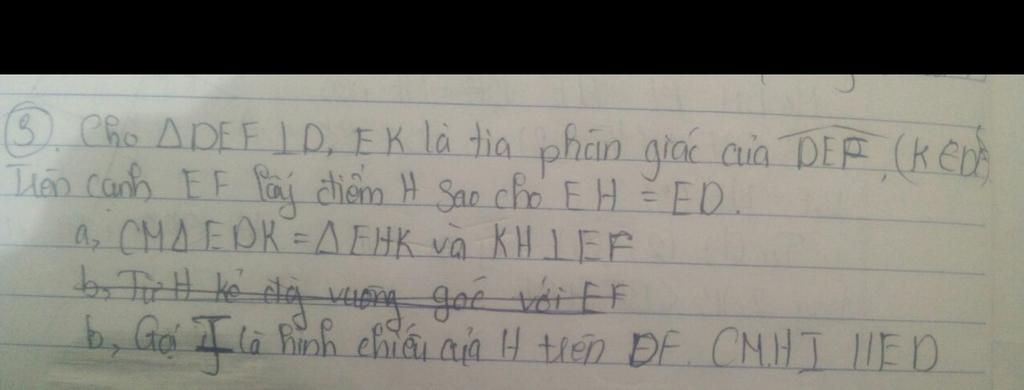 ③. Cho ΔDEF ⊥ D, EK là tia phân giác của DEF, (K∈DF)
Trên cạnh EF lấy điểm H sao cho EH = ED.
a, CMΔEDK = ΔEHK và KH⊥EF
b, Từ H kẻ đg vuông góc với EF
b, Gọi I là hình chiếu của H trên DF. CM.HI //ED